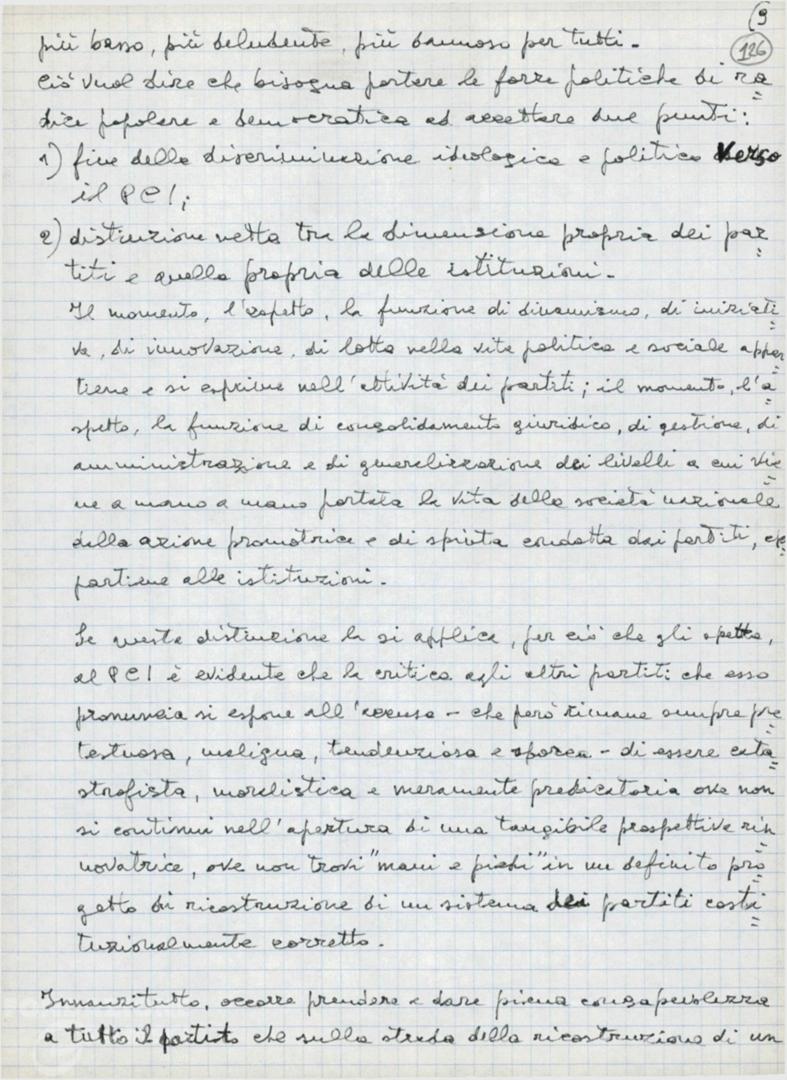 9
126
più basso, più deludente, più dannoso per tutti.
Ciò vuol dire che bisogna portare le forze politiche di ra=
dice popolare e democratica ad accettare due punti:
1) fine della discriminazione ideologica e politica verso
il PCI;
2) distinzione netta tra la dimensione propria dei par=
titi e quella propria delle istituzioni.
Il momento, l'aspetto, la funzione di dinamismo, di iniziati=
va, di innovazione, di lotta nella vita politica e sociale appar=
tiene e si esprime nell'attività dei partiti; il momento, l'a=
spetto, la funzione di consolidamento giuridico, di gestione, di
amministrazione e di generalizzazione dei livelli a cui vie=
ne a mano a mano portata la vita della società nazionale
dalla azione promotrice e di spinta condotta dai partiti, ap=
partiene alle istituzioni.
Se questa distinzione la si applica, per ciò che gli spetta,
al PCI è evidente che la critica agli altri partiti che esso
pronuncia si espone all'accusa - che però rimane sempre pre=
testuosa, maligna, tendenziosa e sporca - di essere cata=
strofista, moralistica e meramente predicatoria ove non
si continui nell'apertura di una tangibile prospettiva rin=
novatrice, ove non trovi "mani e piedi" in un definito pro=
getto di ricostruzione di un sistema dei partiti costi=
tuzionalmente corretto.
Innanzitutto, occorre prendere e dare piena consapevolezza
a tutto il partito che sulla strada della ricostruzione di un